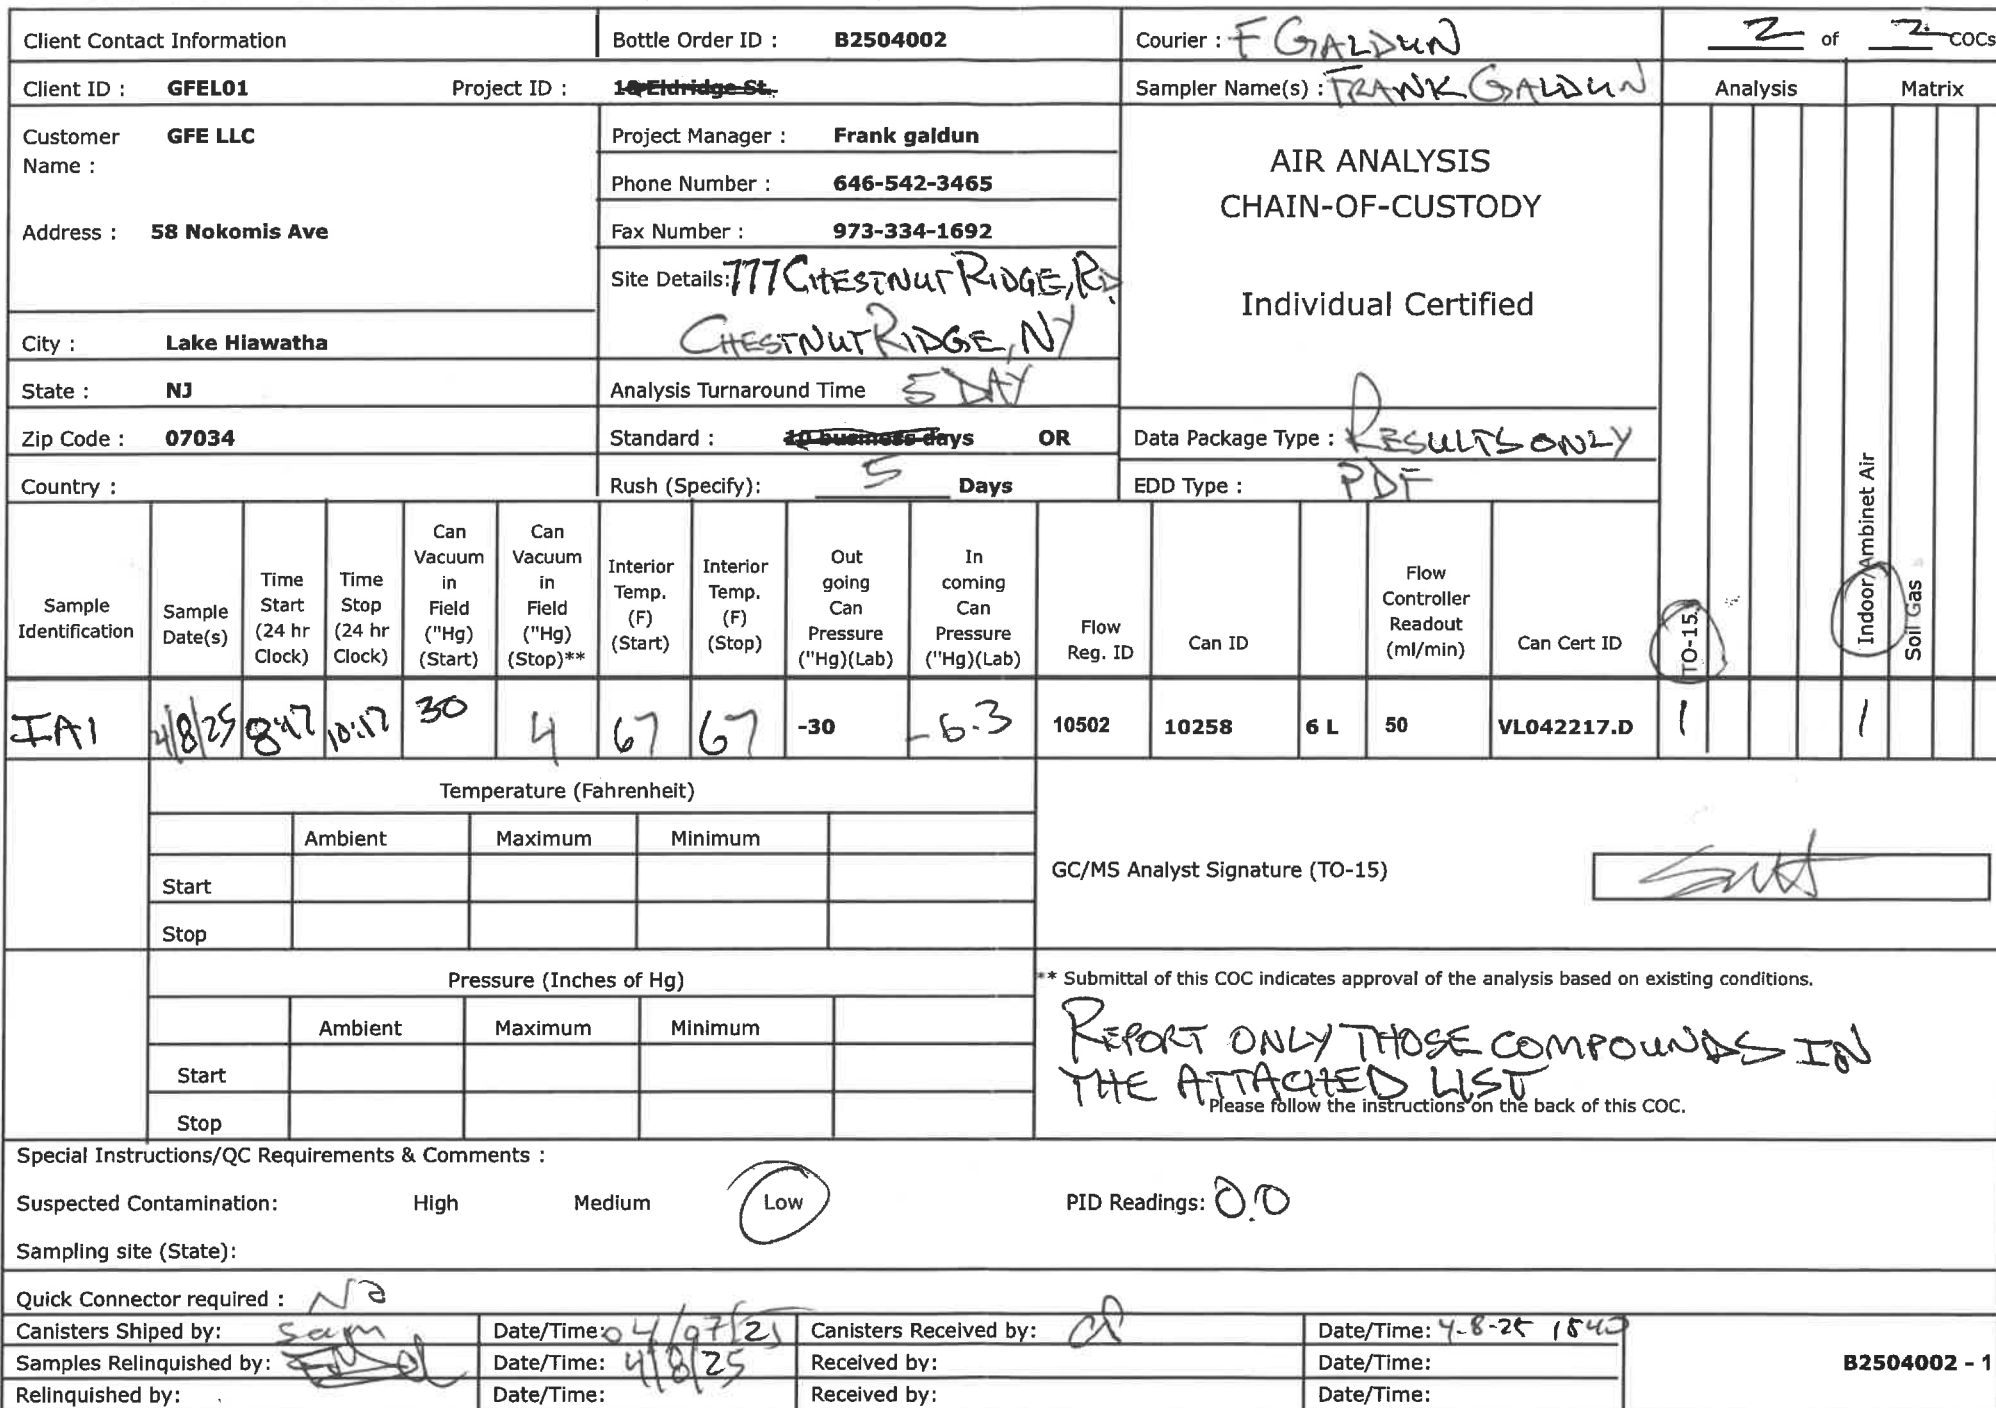 Client Contact Information Bottle Order ID : B2504002 Courier : F GALDUN 2 of 2 COCs
Client ID : GFEL01 Project ID : 18 Eldridge St. Sampler Name(s) : FRANK GALDUN Analysis Matrix
Customer Name : GFE LLC
Project Manager : Frank galdun
Phone Number : 646-542-3465
Address : 58 Nokomis Ave
Fax Number : 973-334-1692
Site Details: 777 CHESTNUT RIDGE, RD
CHESTNUT RIDGE, NY
AIR ANALYSIS
CHAIN-OF-CUSTODY
Individual Certified
City : Lake Hiawatha
State : NJ
Analysis Turnaround Time 5 DAY
Zip Code : 07034
Standard : 10 business days OR
Data Package Type : RESULTS ONLY
Country :
Rush (Specify): 5 Days
EDD Type : PDF
Sample Identification
Sample Date(s)
Time Start (24 hr Clock)
Time Stop (24 hr Clock)
Can Vacuum in Field ("Hg) (Start)
Can Vacuum in Field ("Hg) (Stop)**
Interior Temp. (F) (Start)
Interior Temp. (F) (Stop)
Out going Can Pressure ("Hg)(Lab)
In coming Can Pressure ("Hg)(Lab)
Flow Reg. ID
Can ID
Flow Controller Readout (ml/min)
Can Cert ID
TO-15
Indoor/Ambinet Air
Soil Gas
IA1 4/8/25 847 10:17 30 4 67 67 -30 -6.3 10502 10258 6 L 50 VL042217.D 1 1
Temperature (Fahrenheit)
Ambient Maximum Minimum
Start
Stop
GC/MS Analyst Signature (TO-15)
Pressure (Inches of Hg)
Ambient Maximum Minimum
Start
Stop
** Submittal of this COC indicates approval of the analysis based on existing conditions.
REPORT ONLY THOSE COMPOUNDS IN
THE ATTACHED LIST
Please follow the instructions on the back of this COC.
Special Instructions/QC Requirements & Comments :
Suspected Contamination: High Medium Low PID Readings: 0.0
Sampling site (State):
Quick Connector required : No
Canisters Shiped by: Sam Date/Time: 04/07/25 Canisters Received by: Date/Time: 4-8-25 1540
Samples Relinquished by: Date/Time: 4/8/25 Received by: Date/Time: B2504002 - 1
Relinquished by: Date/Time: Received by: Date/Time: